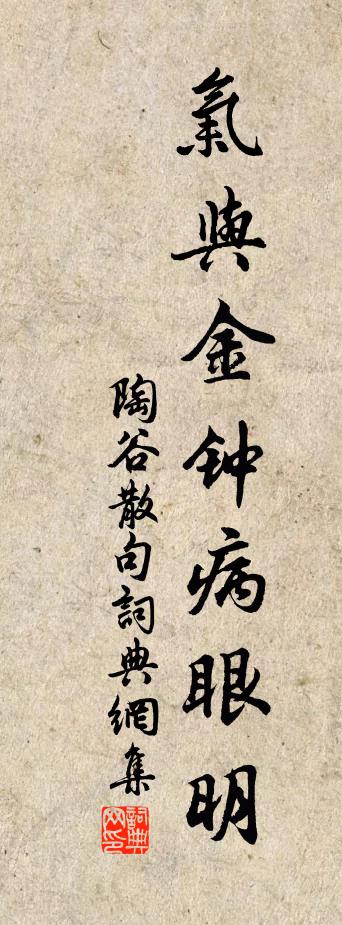 氣與金钟病眼明
陶谷散句詞典網集
詞典网印